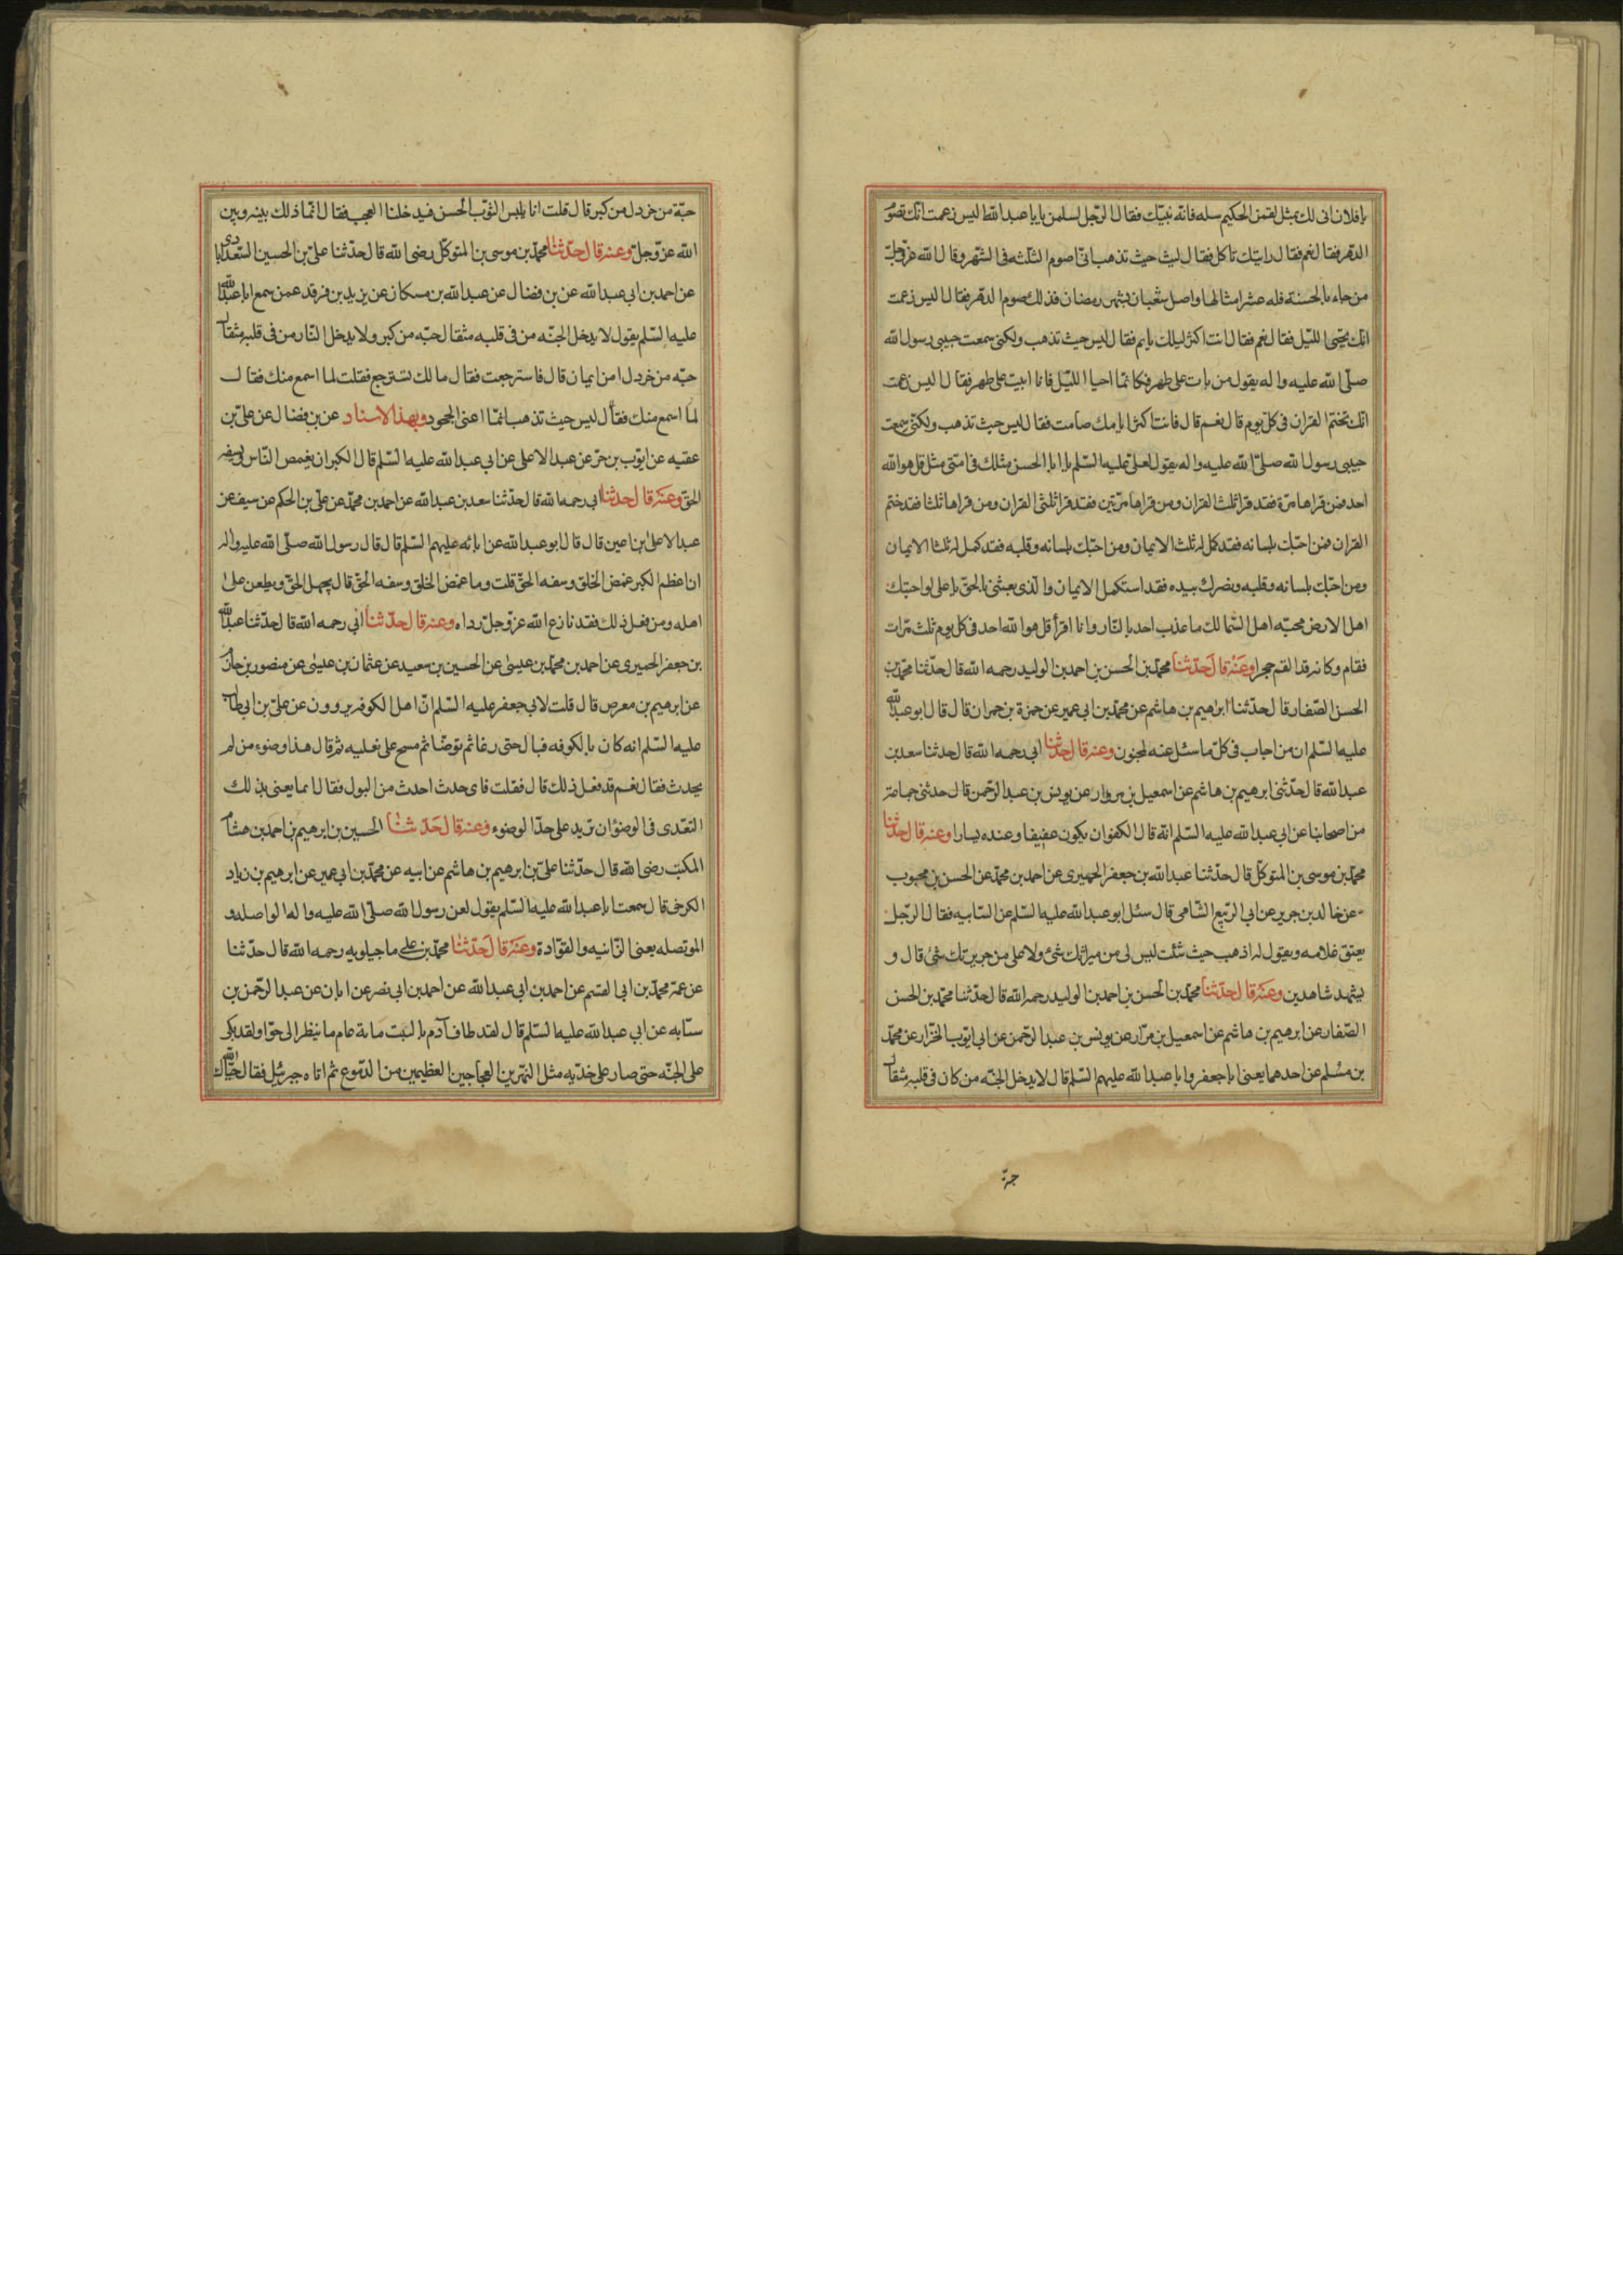 يا فلان انى لك بمثل لقمن الحكيم سله فانه نبيّك فقال الرّجل لسلمن يا با عبد الله اليس زعمت انّك تصوم
الدّهر فقال نعم فقال رايتك تاكل فقال ليث حيث تذهب انّى اصوم الثلثه فى الشّهر وقال الله عزّ وجلّ
من جاء بالحسنة فله عشر امثالها واصل شعبان بشهر رمضان فذلك صوم الدّهر فقال اليس زعمت
انّك تحيى الليّل فقال نعم فقال انت اكثر ليلك نايم فقال ليس حيث تذهب ولكنى سمعت حبيبى رسول الله
صلّى الله عليه واله يقول من بات على طهر فكانمّا احيا الليّل فانا ابيت على طهر فقال اليس زعمت
انّك تختم القران فى كلّ يوم قال نعم قال فانت اكثر ايامك صامت فقال ليس حيث تذهب ولكنّى سمعت
حبيبى رسول الله صلّى الله عليه واله يقول لعلىّ عليه السّلم يا ابا الحسن مثلك فى امّتى مثل قل هو الله
احد فمن قراها مرّة فقد قرا ثلث القران ومن قراها مرّتين فقد قرا ثلثى القران ومن قراها ثلثا فقد ختم
القران فمن احبّك بلسانه فقد كمل له ثلث الايمان ومن احبّك بلسانه وقلبه فقد كمل له ثلثا الايمان
ومن احبّك بلسانه وقلبه ونصرك بيده فقد استكمل الايمان والّذى بعثنى بالحقّ يا على لو احبّك
اهل الارض محبّه اهل السّما لك ما عذب احد بالنّار وانا اقرأ قل هو الله احد فى كل يوم ثلث مرّات
فقام وكانه قد القم حجرا وعنه قال حدّثنا محمّد بن الحسن بن احمد بن الوليد رحمه الله قال حدّثنا محمّد بن
الحسن الصّفار قال حدّثنا ابراهيم بن هاشم عن محمّد بن ابى عمير عن حمزة بن حمران قال قال ابو عبد الله
عليه السّلم ان من اجاب فى كلّ ما سئل عنه لمجنون وعنه قال حدّثنا ابى رحمه الله قال حدثنا سعد بن
عبد الله قال حدّثنى ابرهيم بن هاشم عن اسمعيل بن مروار عن يونس بن عبد الرّحمن قال حدثنى جماعة
من اصحابنا عن ابى عبد الله عليه السّلم انّه قال الكفو ان يكون عفيفا وعنده يسارا وعنه قال حدّثنا
محمّد بن موسى بن المتوكّل قال حدّثنا عبد الله بن جعفر الحميرى عن احمد بن محمّد عن الحسن بن محبوب
عن خالد بن جرير عن ابى الرّبيع الشّامى قال سئل ابو عبد الله عليه السّلم عن السّايبه فقال الرّجل
يعتق غلامه ويقول له اذهب حيث شئت ليس لى من ميراثك شئ ولا على من جريرتك شئ قال و
يشهد شاهدين وعنه قال حدّثنا محمّد بن الحسن بن احمد بن الوليد رحمه الله قال حدّثنا محمّد بن الحسن
الصّفار عن ابرهيم بن هاشم عن اسمعيل بن مرّار عن يونس بن عبد الرّحمن عن ابى ايّوب الخرّار عن محمّد
بن مسلم عن احدهما يعنى ابا جعفر وابا عبد الله عليهم السّلم قال لا يدخل الجنّه من كان فى قلبه مثقال
حبّة من خردل من كبر قال قلت انا نلبس الثّوب الحسن فيدخلنا العجب فقال انمّا ذلك بينه وبين
الله عزّ وجلّ وعنه قال حدّثنا محمّد بن موسى بن المتوكّل رضى الله قال حدّثنا علىّ بن الحسين السّعد ابادى
عن احمد بن ابى عبد الله عن بن فضال عن عبد الله بن مسكان عن يزيد بن فرقد عمن سمع ابا عبد الله
عليه السّلم يقول لا يدخل الجنّه من فى قلبه مثقال حبّه من كبر ولا يدخل النّار من فى قلبه مثقال
حبّه من خردل امن ايمان قال فاسترجعت فقال ما لك تسترجع فقلت لما اسمع منك فقال
لما اسمع منك فقال ليس حيث تذهب انمّا اعنى الجحود وبهذا الاسناد عن بن فضال عن علىّ بن
عقبه عن ايّوب بن حرّ عن عبد الاعلى عن ابى عبد الله عليه السّلم قال الكبر ان يغمص النّاس ويسفه
الحقّ وعنه قال حدّثنا ابى رحمه الله قال حدّثنا سعد بن عبد الله عن احمد بن محمّد عن علىّ بن الحكم عن سيف عن
عبد الاعلى بن اعين قال قال ابو عبد الله عن ابائه عليهم السّلم قال قال رسول الله صلّى الله عليه واله
ان اعظم الكبر غمض الخلق وسفه الحقّ قلت وما غمض الخلق وسفه الحقّ قال يجهل الحقّ ويطعن على
اهله ومن فعل ذلك فقد نازع الله عزّ وجلّ رداه وعنه قال حدّثنا ابى رحمه الله قال حدّثنا عبد الله
بن جعفر الحميرى عن احمد بن محمّد بن عيسى عن الحسين بن سعيد عن عثمان بن عيسى عن منصور بن حازم
عن ابرهيم بن معرض قال قلت لابى جعفر عليه السّلم انّ اهل الكوفه يروون عن علىّ بن ابى طالب
عليه السّلم انه كان بالكوفه فبال حتى رغا ثم توضّا ثم مسح على نعليه ثم قال هذا وضوء من لم
يحدث فقال نعم قد فعل ذلك قال فقلت فاى حدث احدث من البول فقال انما يعنى بذلك
التعّدى فى الوضوء ان تزيد على حدّ الوضوء وعنه قال حَدّثنا الحسين بن ابرهيم بن احمد بن هشام
المكتب رضى الله قال حدّثنا علىّ بن ابرهيم بن هاشم عن ابيه عن محمّد بن ابى عمير عن ابرهيم بن زياد
الكرخى قال سمعت ابا عبد الله عليه السّلم يقول لعن رسول الله صلّى الله عليه واله الواصله و
الموتصله يعنى الزّانيه والقوّادة وعنه قال حَدّثنا محمّد بن على ماجيلويه رحمه الله قال حدّثنا
عن عمّه محمّد بن ابى القسم عن احمد بن ابى عبد الله عن احمد بن ابى نصر عن ابان عن عبد الرحّمن بن
ستابه عن ابى عبد الله عليه السّلم قال لقد طاف آدم بالبيت ماية عام ما ينظر الى حوّا ولقد بكى
على الجنّه حتى صار على خدّيه مثل النهرين العجاجين العظيمين من الدّموع ثم اتاه جبرئيل فقال حيّاك الله